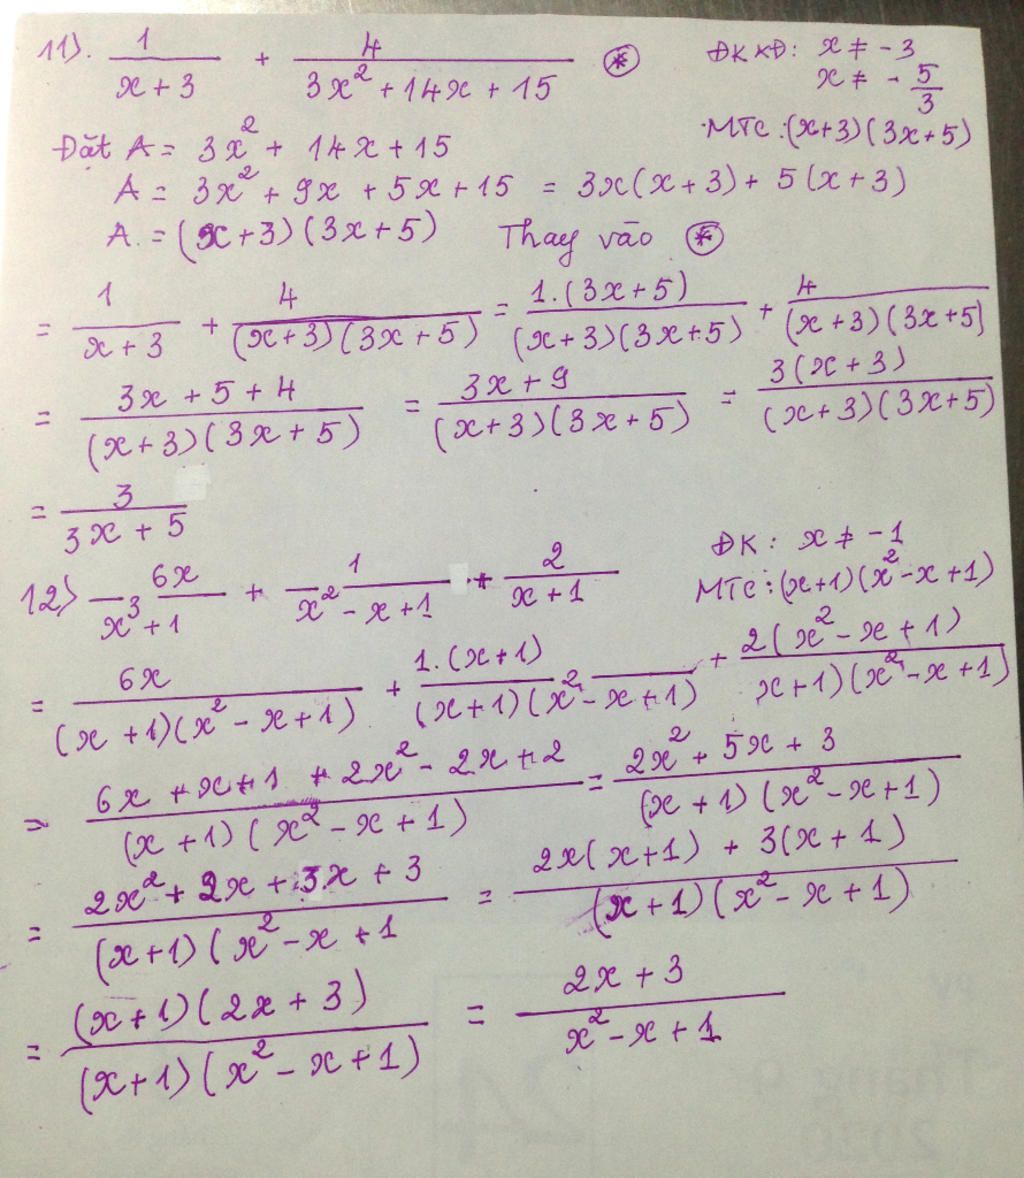 11). 1/(x + 3) + 4/(3x² + 14x + 15) (*) ĐKXĐ: x ≠ -3
x ≠ -5/3
MTC: (x+3)(3x+5)
Đặt A = 3x² + 14x + 15
A = 3x² + 9x + 5x + 15 = 3x(x + 3) + 5(x + 3)
A = (x+3)(3x+5) Thay vào (*)
= 1/(x + 3) + 4/((x+3)(3x + 5)) = 1.(3x+5)/((x+3)(3x+5)) + 4/((x+3)(3x+5))
= (3x + 5 + 4)/((x+3)(3x + 5)) = (3x + 9)/((x+3)(3x + 5)) = 3(x + 3)/((x+3)(3x+5))
= 3/(3x + 5)
ĐK: x ≠ -1
12) 6x/(x³ + 1) + 1/(x² - x + 1) + 2/(x + 1) MTC: (x+1)(x² - x + 1)
= 6x/((x + 1)(x² - x + 1)) + 1.(x+1)/((x+1)(x² - x + 1)) + 2(x² - x + 1)/(x+1)(x² - x + 1)
= (6x + x + 1 + 2x² - 2x + 2)/((x + 1)(x² - x + 1)) = (2x² + 5x + 3)/((x + 1)(x² - x + 1))
= (2x² + 2x + 3x + 3)/((x+1)(x² - x + 1) = (2x(x+1) + 3(x + 1))/((x+1)(x² - x + 1))
= (x+1)(2x + 3)/((x+1)(x² - x + 1)) = (2x + 3)/(x² - x + 1)